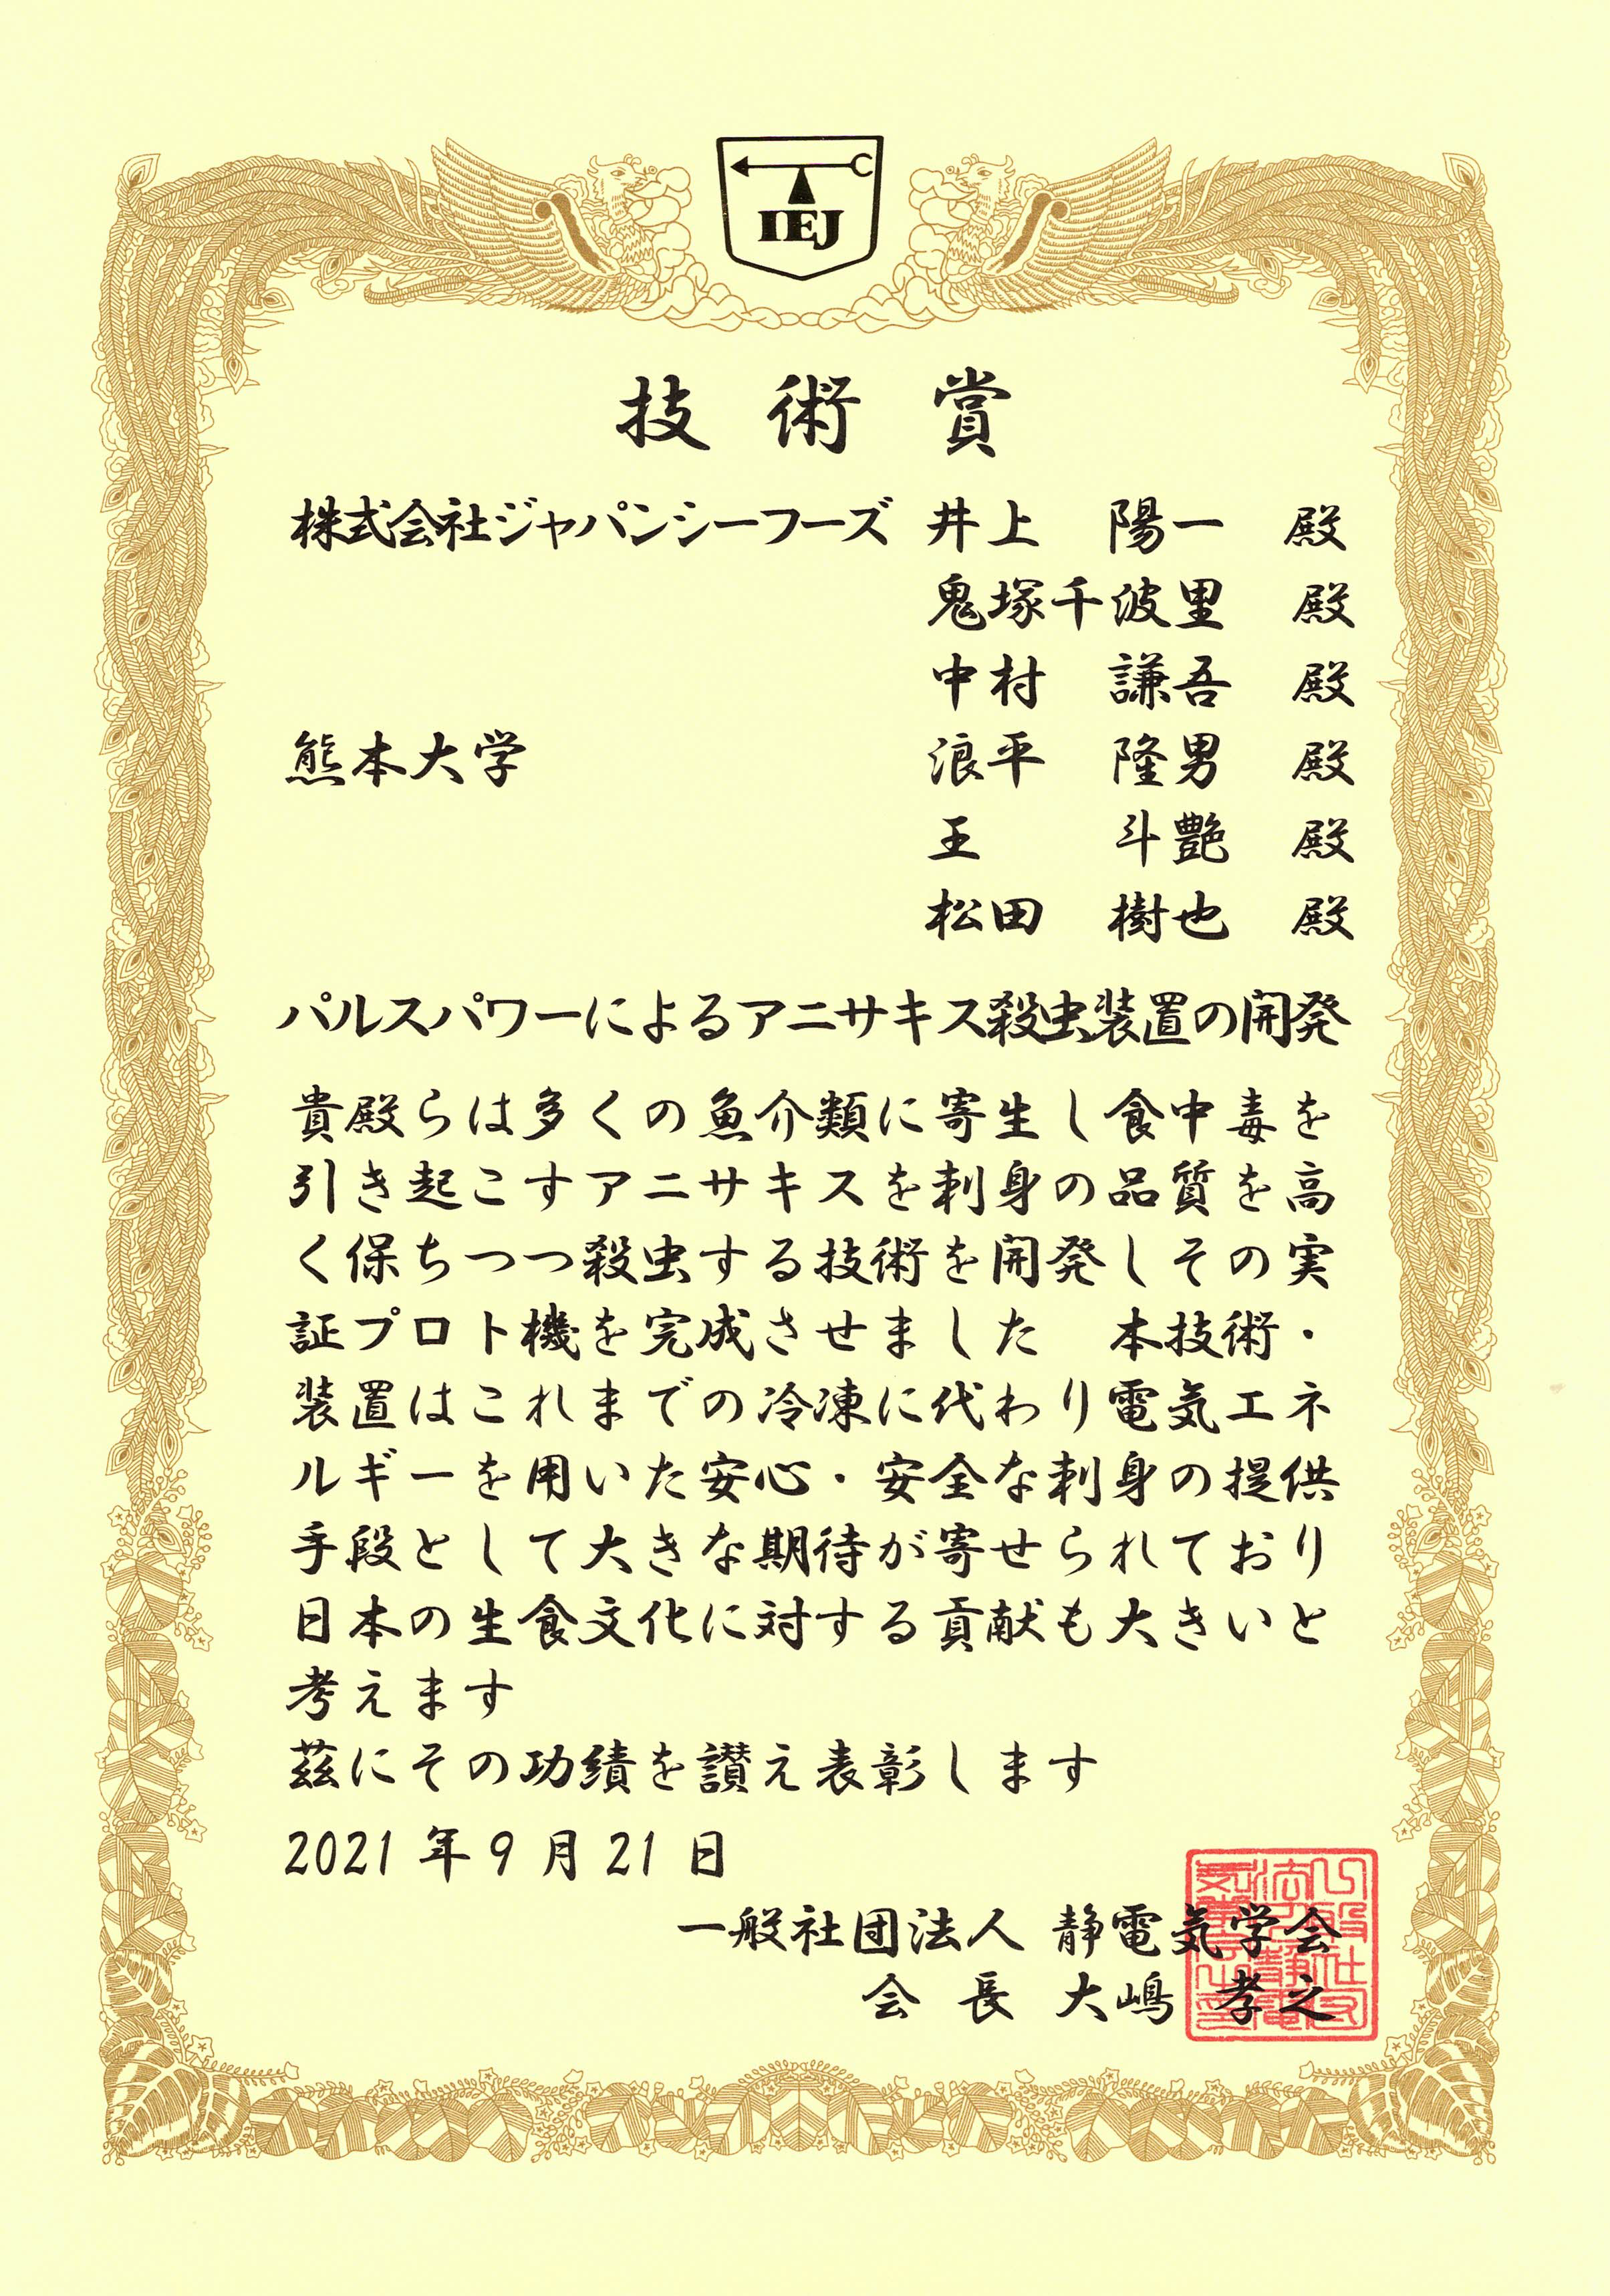 IEJ
技術賞
株式会社ジャパンシーフーズ 井上 陽一 殿
鬼塚千波里 殿
中村 謙吾 殿
熊本大学 浪平 隆男 殿
王 斗艶 殿
松田 樹也 殿
パルスパワーによるアニサキス殺虫装置の開発
貴殿らは多くの魚介類に寄生し食中毒を
引き起こすアニサキスを刺身の品質を高
く保ちつつ殺虫する技術を開発しその実
証プロト機を完成させました 本技術・
装置はこれまでの冷凍に代わり電気エネ
ルギーを用いた安心・安全な刺身の提供
手段として大きな期待が寄せられており
日本の生食文化に対する貢献も大きいと
考えます
茲にその功績を讃え表彰します
2021年9月21日
一般社団法人 静電気学会
会長 大嶋 孝之